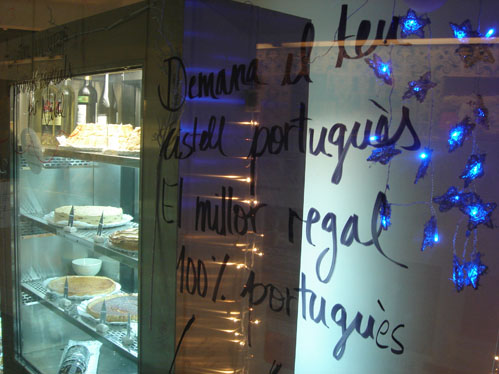 Demana el teu
pastell portuguès
El millor regal
100% portuguès